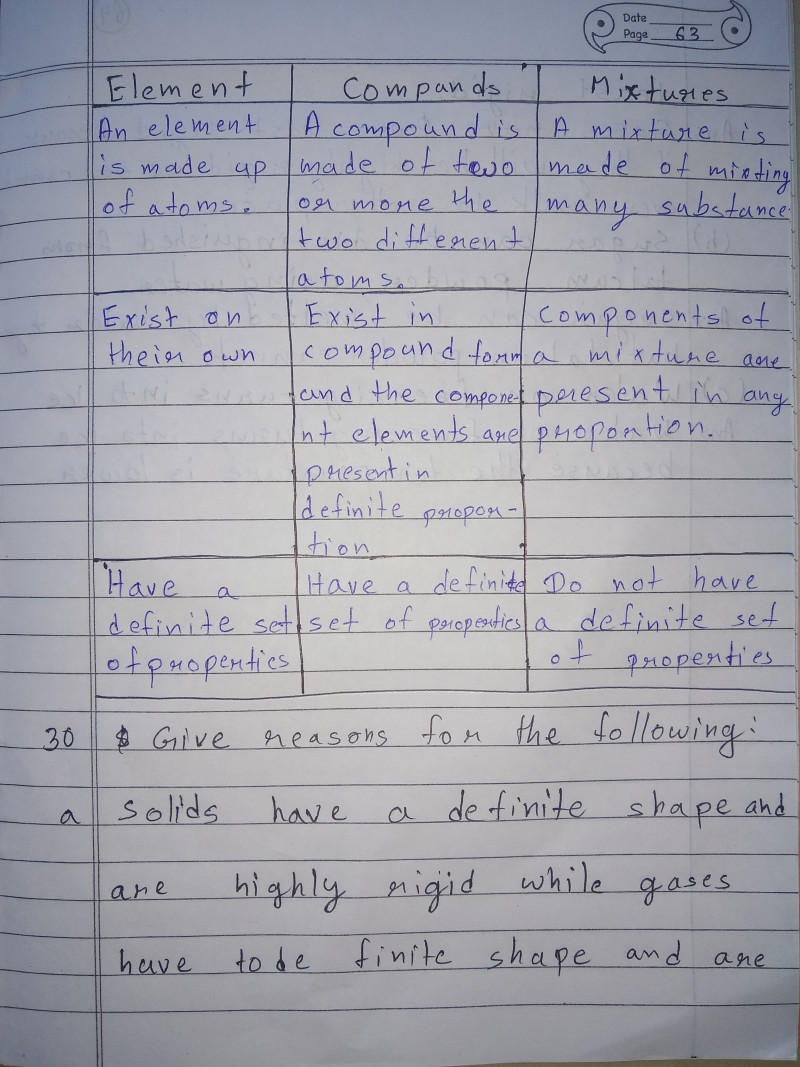 Date
Page 63
Element Compunds Mixtures
An element
is made up
of atoms.
A compound is
made of two
or more the
two different
atoms.
A mixture is
made of mixting
many substance.
Exist on
their own
Exist in
compound form
and the compone-
nt elements are
present in
definite propor-
tion
Components of
a mixture are
present in any
proportion.
Have a
definite set
of properties
Have a definite
set of properties
Do not have
a definite set
of properties
30 Give reasons for the following:
a Solids have a definite shape and
are highly rigid while gases
have to de finite shape and are